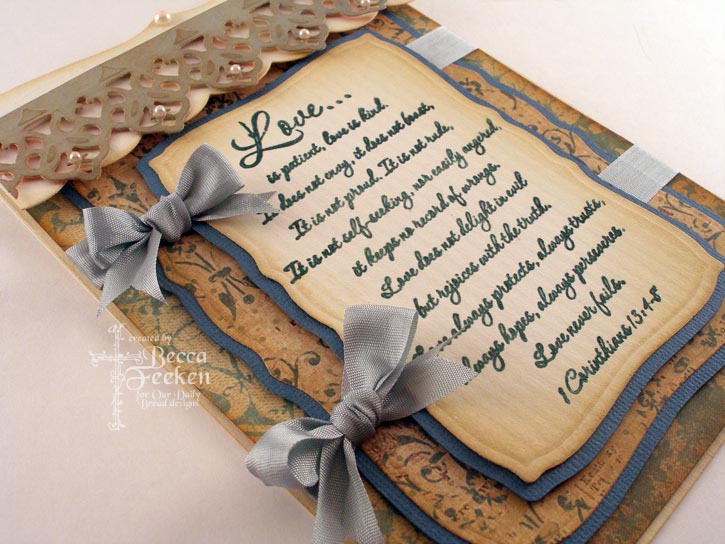 Love...
is patient, love is kind.
It does not envy, it does not boast,
It is not proud. It is not rude,
It is not self-seeking, nor easily angered,
it keeps no record of wrongs.
Love does not delight in evil
but rejoices with the truth.
always protects, always trusts,
always hopes, always perseveres.
Love never fails.
1 Corinthians 13:4-8
created by
Becca
Feeken
for Our Daily
Bread designs